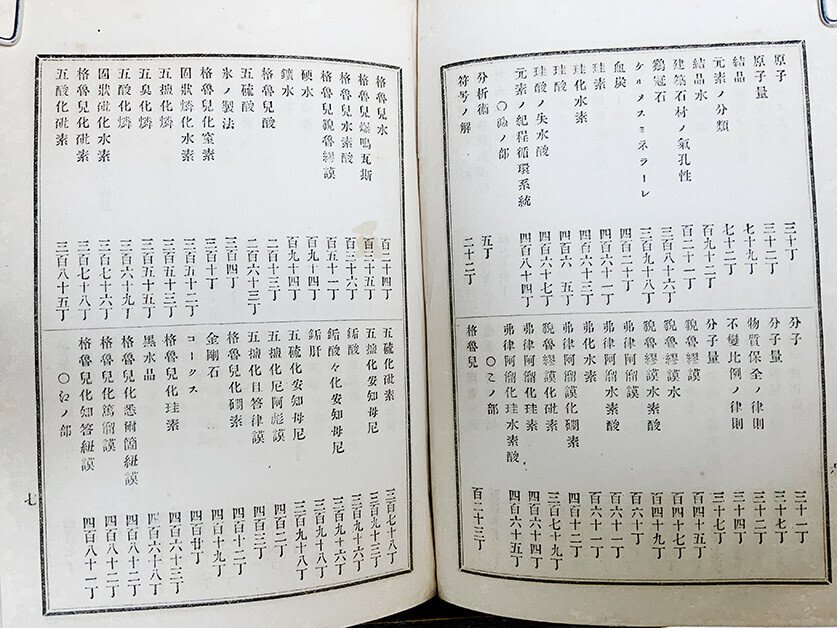 原子 三十丁
原子量 三十二丁
結晶 七十九丁
元素ノ分類 七十二丁
結晶水 百九十二丁
建築石材ノ氣孔性 百二十一丁
鷄冠石 三百八十六丁
ケルメスミネラーレ 三百九十八丁
血炭 四百二十丁
珪素 四百六十一丁
珪化水素 四百六十三丁
珪酸 四百六 五丁
珪酸ノ失水酸 四百六十七丁
元素ノ紀程循環系統 四百八十四丁
○ふノ部
分析術 五丁
符号ノ解 二十二丁
分子 三十一丁
分子量 三十七丁
物質保全ノ律則 三十二丁
不變比例ノ律則 三十四丁
分子量 三十七丁
貎魯繆謨 百四十五丁
貎魯繆謨水 百四十七丁
貎魯繆謨水素酸 百四十九丁
弗律阿㽞謨 百六十丁
弗律阿㽞謨水素酸 百六十一丁
弗化水素 百六十一丁
弗律阿㽞謨化硼素 四百十二丁
貎魯繆謨化砒素 三百七十九丁
貎魯繆謨化珪素 四百六十四丁
弗律阿㽞謨化珪水素酸 四百六十五丁
○こノ部
格魯兒 百二十三丁
格魯兒水 百二十四丁
格魯兒爆鳴瓦斯 百三十五丁
格魯兒水素酸 百三十六丁
格魯兒貎魯繆謨 百五十一丁
硬水 百九十四丁
鑛水 百九十四丁
格魯兒酸 二百十三丁
五硫酸 二百六十三丁
氷ノ製法 三百四丁
格魯兒化窒素 三百十丁
固狀燐化水素 三百五十二丁
五 化燐 三百五十三丁
五臭化燐 三百五十五丁
五酸化燐 三百六十九丁
固狀砒化水素 三百七十六丁
格魯兒化砒素 三百七十八丁
五酸化砒素 三百八十五丁
五硫化砒素 三百七十八丁
五 化安知母尼 三百九十三丁
酸 三百九十六丁
酸々化安知母尼 三百九十六丁
肝 三百九十八丁
五硫化安知母尼 三百九十八丁
五 化尼阿彪謨 四百二丁
五 化且答律謨 四百三丁
格魯兒化硼素 四百十二丁
金剛石 四百十九丁
コークス 四百廿丁
格魯兒化珪素 四百六十三丁
黒水晶 四百六十八丁
格魯兒化悉爾箇紐謨
格魯兒化篤㽞謨 四百八十二丁
格魯兒化知答紐謨 四百八十一丁
ノ部
七